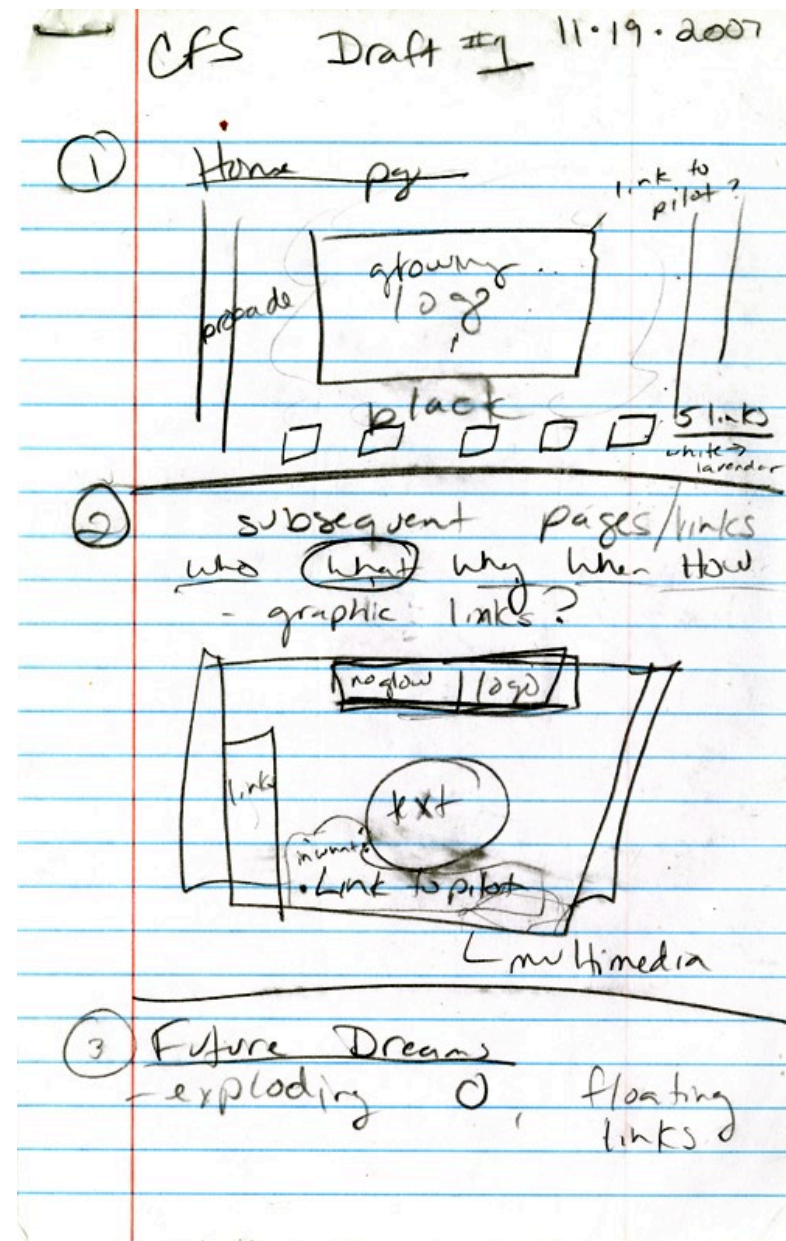 CFS Draft #1 11.19.2007
① Home pg
link to
pilot?
glowing
logo
black
5 links
white →
lavender
② subsequent pages/links
who what why when How
- graphic links?
no glow | logo
links
text
• Link to pilot
multimedia
③ Future Dreams
- exploding O, floating
links